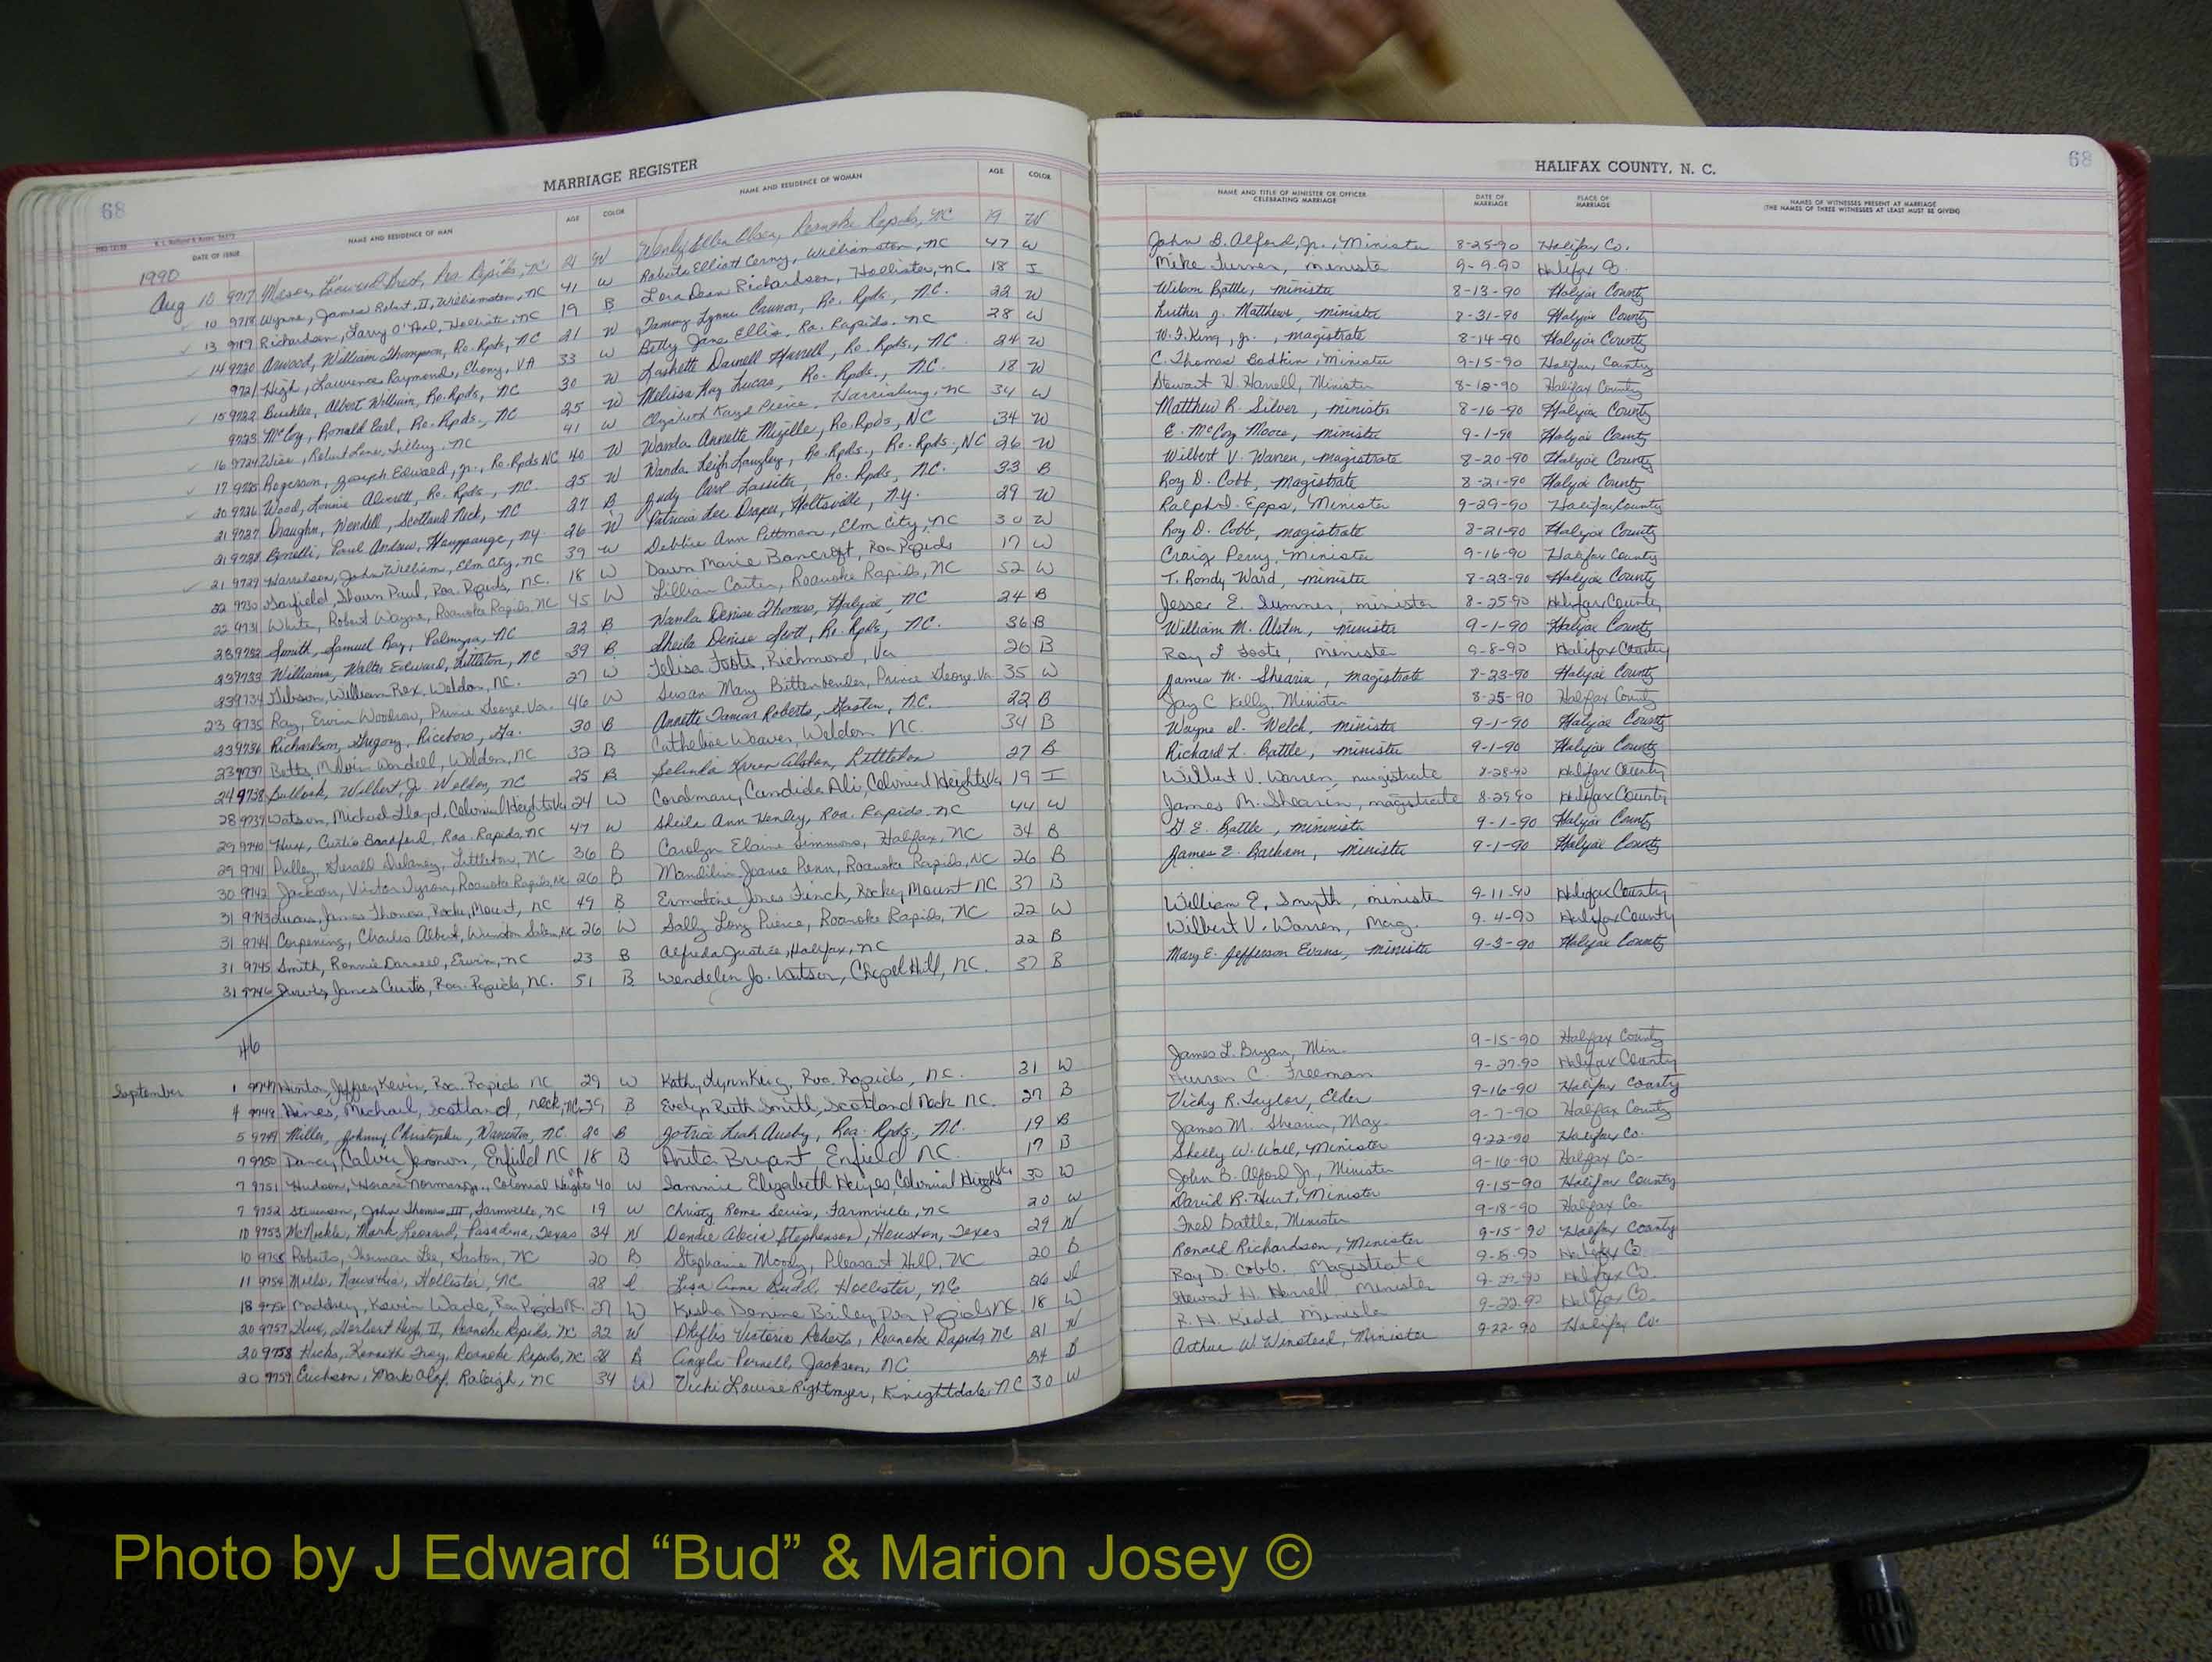 68
MARRIAGE REGISTER
DATE OF ISSUE NAME AND RESIDENCE OF MAN AGE COLOR NAME AND RESIDENCE OF WOMAN AGE COLOR
1990
Aug 10 9717 Mason, Fred, Roa. Rapids, NC 21 W Wendy Ellen, Roanoke Rapids, NC 19 W
10 9718 Wynne, James Robert, II, Williamston, NC 41 W Roberta Elliott, Williamston, NC 47 W
13 9719 Richardson, Larry O'Neal, Hollister, NC 19 B Lora Dean Richardson, Hollister, NC 18 I
14 9720 William Thompson, Ro. Rpds, NC 21 W Tammy Lynne, Ro. Rpds, N.C. 22 W
9721 High, Lawrence Raymond, Ebony, VA 33 W Betty Jane Ellis, Ro. Rapids, NC 28 W
15 9722 Albert William, Ro. Rpds, NC 30 W Darnell Harrell, Ro. Rpds., NC. 24 W
9723 McCoy, Ronald Earl, Ro. Rpds., NC 25 W Melissa Kay Lucas, Ro. Rpds., N.C. 18 W
16 9724 Wise, Robert Lane, Tillery, NC 41 W Elizabeth Kaye Pierce, Harrisburg, NC 34 W
17 9725 Rogerson, Joseph Edward, Jr., Ro. Rpds NC 40 W Wanda Annette Mizelle, Ro. Rpds, NC 34 W
20 9726 Wood, Lonnie, Ro. Rpds, NC. 25 W Wanda Leigh Langley, Ro. Rpds., NC 26 W
21 9727 Draughn, Wendell, Scotland Neck, NC 27 B Judy Carol Lassiter, Ro. Rpds, NC. 33 B
21 9728 Paul Andrew, Hauppauge, NY 26 W Patricia Lee Draper, Holtsville, N.Y. 29 W
21 9729 Harrelson, John William, Elm City, NC 39 W Debbie Ann Pittman, Elm City, NC 30 W
22 9730 Shaun Paul, Roa. Rapids, NC. 18 W Dawn Marie Bancroft, Roa Rapids 17 W
22 9731 White, Robert Wayne, Roanoke Rapids, NC 45 W Lillian Carter, Roanoke Rapids, NC 52 W
23 9732 Smith, Samuel Ray, Palmyra, NC 22 B Wanda Denise Thomas, Halifax, NC 24 B
23 9733 Williams, Walter Edward, Littleton, NC 39 B Sheila Denise Scott, Ro. Rpds, NC. 36 B
23 9734 Gibson, William Rex, Weldon, NC. 27 W Felisa Foote, Richmond, Va 26 B
23 9735 Ray, Ervin Woodrow, Prince George, Va. 46 W Susan Mary Bittenbender, Prince George, Va 35 W
23 9736 Richardson, Gregory, Riceboro, Ga. 30 B Annette Roberts, Gaston, N.C. 22 B
23 9737 Betts, Melvin Wendell, Weldon, NC 32 B Catherine Weaver, Weldon NC. 34 B
24 9738 Bullock, Wilbert, Jr. Weldon, NC 25 B Alston, Littleton 27 B
28 9739 Watson, Michael Lloyd, Colonial Heights Va 24 W Candida Ali, Colonial Heights Va, 19 I
29 9740 Hux, Curtis Bradford, Roa. Rapids, NC 47 W Sheila Ann Henley, Roa. Rapids, NC 44 W
29 9741 Pulley, Gerald Delaney, Littleton, NC 36 B Carolyn Elaine Simmons, Halifax, NC 34 B
30 9742 Jackson, Victor Tyron, Roanoke Rapids, NC 26 B Joanne Penn, Roanoke Rapids, NC 26 B
31 9743 Lucas, James Thomas, Rocky Mount, NC 49 B Ermadine Jones Finch, Rocky Mount NC 37 B
31 9744 Corpening, Charles Albert, Winston Salem, NC 26 W Sally Long Pierce, Roanoke Rapids, NC 22 W
31 9745 Smith, Ronnie Darnell, Erwin, NC 23 B Alfreda Justice, Halifax, NC 22 B
31 9746 James Curtis, Roa. Rapids, NC. 51 B Wendelin Jo. Watson, Chapel Hill, NC. 37 B
46
September 1 9747 Hinton, Jeffrey Kevin, Roa. Rapids NC 29 W Kathy Lynn King, Roa. Rapids, NC. 31 W
4 9748 Hines, Michael, Scotland, neck, NC 29 B Evelyn Ruth Smith, Scotland Neck NC. 27 B
5 9749 Miller, Johnny Christopher, Warrenton, NC. 20 B Leah Ausby, Roa. Rpds, NC. 19 B
7 9750 Dancy, Calvin, Enfield NC 18 B Anita Bryant Enfield NC. 17 B
7 9751 Hudson, Horace Norman, Jr., Colonial Heights VA 40 W Tammie Elizabeth, Colonial Heights Va 30 W
7 9752 Stevenson, John Thomas III, Farmville, NC 19 W Christy Rome Lewis, Farmville, NC 20 W
10 9753 McNickle, Mark Leonard, Pasadena, Texas 34 W Dendie Alecia Stephenson, Houston, Texas 29 W
10 9755 Roberts, Thurman Lee, Gaston, NC 20 B Stephanie Moody, Pleasant Hill, NC 20 B
11 9754 Mills, Hollister, NC 28 I Lisa Anne, Hollister, NC 26 I
18 9756 Maddrey, Kevin Wade, Roa. Rapids NC. 27 W Kesha Denine Bailey Roa Rapids NC 18 W
20 9757 Hux, Herbert Hugh II, Roanoke Rapids, NC 22 W Phyllis Victoria Roberts, Roanoke Rapids, NC 21 W
20 9758 Hicks, Kenneth Troy, Roanoke Rapids, NC 28 B Angela Pernell, Jackson, NC 24 B
20 9759 Erickson, Mark Olaf, Raleigh, NC 34 W Vicki Louise Rightmyer, Knightdale, NC 30 W
HALIFAX COUNTY, N. C.
68
NAME AND TITLE OF MINISTER OR OFFICER CELEBRATING MARRIAGE DATE OF MARRIAGE PLACE OF MARRIAGE NAMES OF WITNESSES PRESENT AT MARRIAGE
(THE NAMES OF THREE WITNESSES AT LEAST MUST BE GIVEN)
John B. Alford, Jr., Minister 8-25-90 Halifax Co.
Mike Turner, minister 9-9-90 Halifax Co.
Wilson Battle, minister 8-13-90 Halifax County
Luther J. Matthews, minister 8-31-90 Halifax County
W. F. King, Jr., magistrate 8-14-90 Halifax County
C. Thomas Bodkin, Minister 9-15-90 Halifax County
Stewart H. Harrell, Minister 8-18-90 Halifax County
Matthew R. Silver, minister 8-16-90 Halifax County
E. McCoy Moore, minister 9-1-90 Halifax County
Wilbert V. Warren, magistrate 8-20-90 Halifax County
Roy D. Cobb, magistrate 8-21-90 Halifax County
Ralph D. Epps, Minister 9-29-90 Halifax County
Roy D. Cobb, magistrate 8-21-90 Halifax County
Craig Perry, Minister 9-16-90 Halifax County
T. Rondy Ward, minister 8-23-90 Halifax County
Jesser E. Sumner, minister 8-25-90 Halifax County
William M. Alston, minister 9-1-90 Halifax County
Roy L Foote, minister 9-8-90 Halifax County
James M. Shearin, magistrate 8-23-90 Halifax County
Jay C Kelly, Minister 8-25-90 Halifax County
Wayne Welch, minister 9-1-90 Halifax County
Richard L. Battle, minister 9-1-90 Halifax County
Wilbert V. Warren, magistrate 8-28-90 Halifax County
James M. Shearin, magistrate 8-29-90 Halifax County
G. E. Battle, mininister 9-1-90 Halifax County
James E. Batham, minister 9-1-90 Halifax County
William E. Smyth, minister 9-11-90 Halifax County
Wilbert V. Warren, Mag. 9-4-90 Halifax County
Mary E. Jefferson Evans, minister 9-3-90 Halifax County
James L. Bryan, Min. 9-15-90 Halifax County
C. Freeman 9-27-90 Halifax County
Vicky R. Taylor, Elder 9-16-90 Halifax County
James M. Shearin, Mag. 9-7-90 Halifax County
Shelly W. Wall, Minister 9-22-90 Halifax Co.
John B. Alford Jr., Minister 9-16-90 Halifax Co-
David R. Hurt, Minister 9-15-90 Halifax County
Fred Battle, Minister 9-18-90 Halifax Co.
Ronald Richardson, Minister 9-15-90 Halifax County
Roy D. Cobb. Magistrate Halifax Co
Stewart H. Harrell Minister Halifax Co.
R. H. Kidd Minister 9-22-90 Halifax Co.
Arthur W. Winstead, Minister 9-22-90 Halifax Co.
Photo by J Edward “Bud” & Marion Josey ©